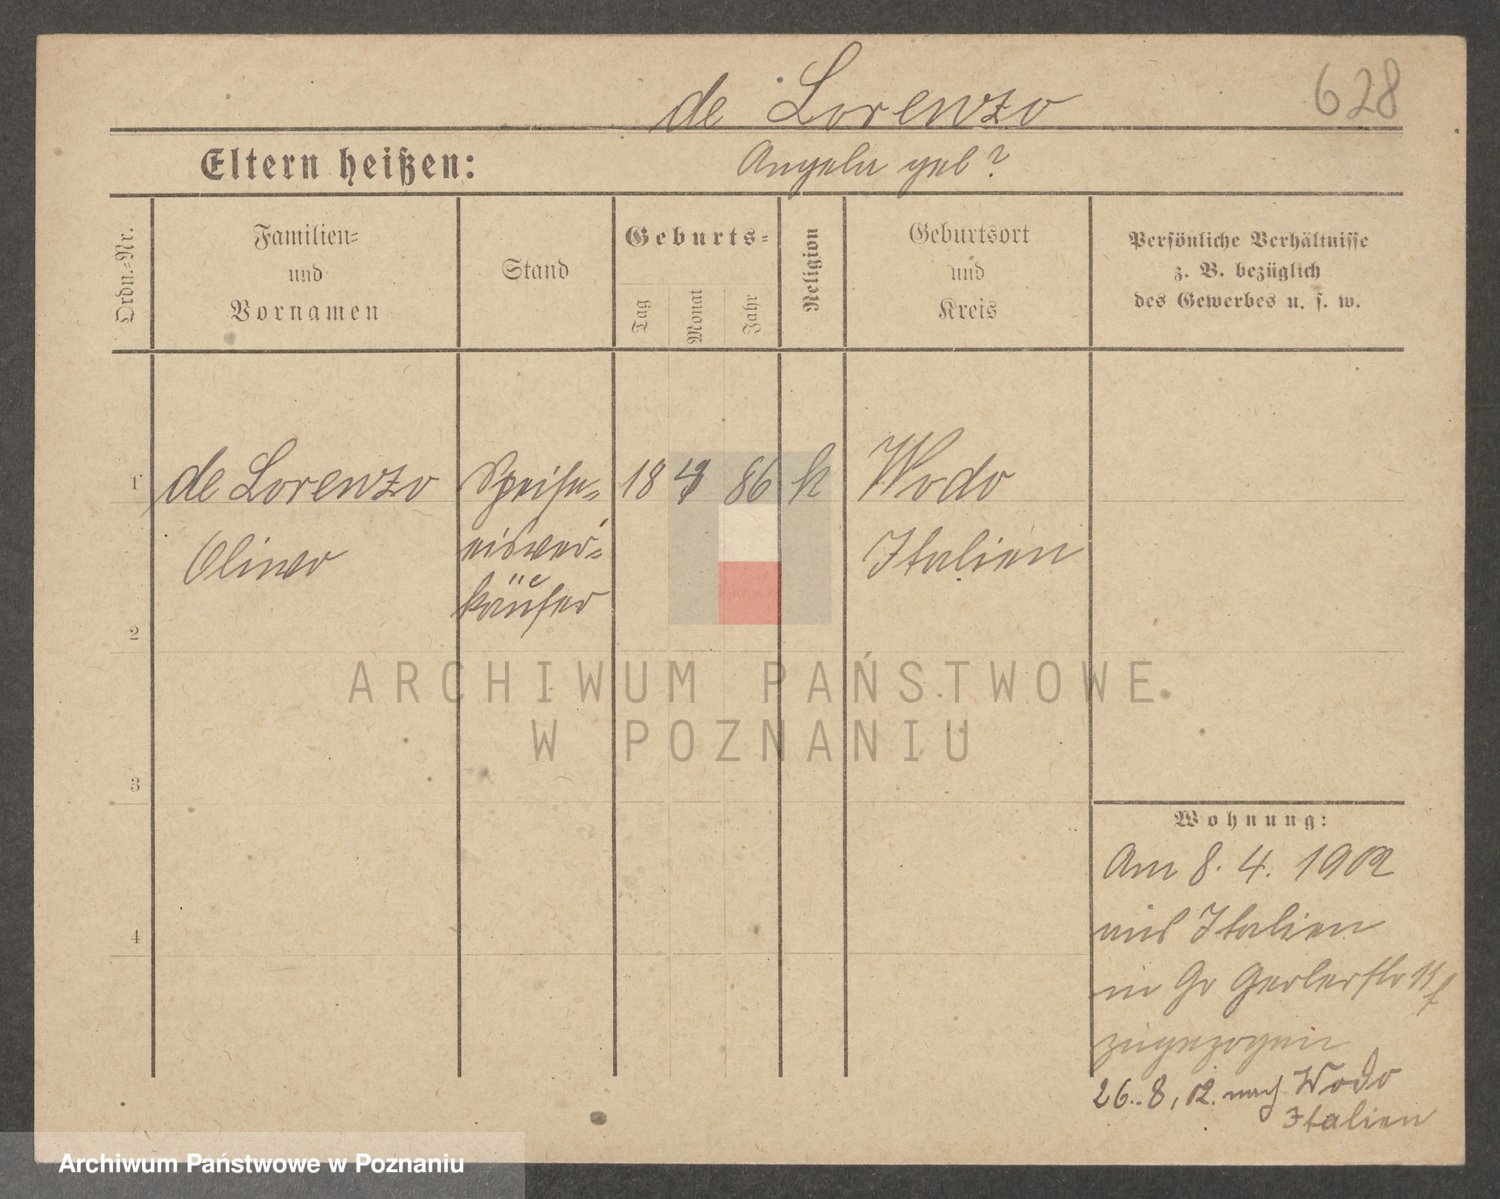 628
de Lorenzo
Eltern heißen:
Angela geb?
Ordn.-Nr.
Familien-
und
Vornamen
Stand
Geburts-
Tag
Monat
Jahr
Religion
Geburtsort
und
Kreis
Persönliche Verhältnisse
z. B. bezüglich
des Gewerbes u. s. w.
1 de Lorenzo Speise- 18 4 86 k Wodo
Oliwo eisver- Italien
käufer
2
ARCHIWUM PAŃSTWOWE
W POZNANIU
3
Wohnung:
Am 8. 4. 1902
aus Italien
in Gr Gerberstr 11
zugezogen
4
26. 8, 12. nach Wodo
Italien
Archiwum Państwowe w Poznaniu